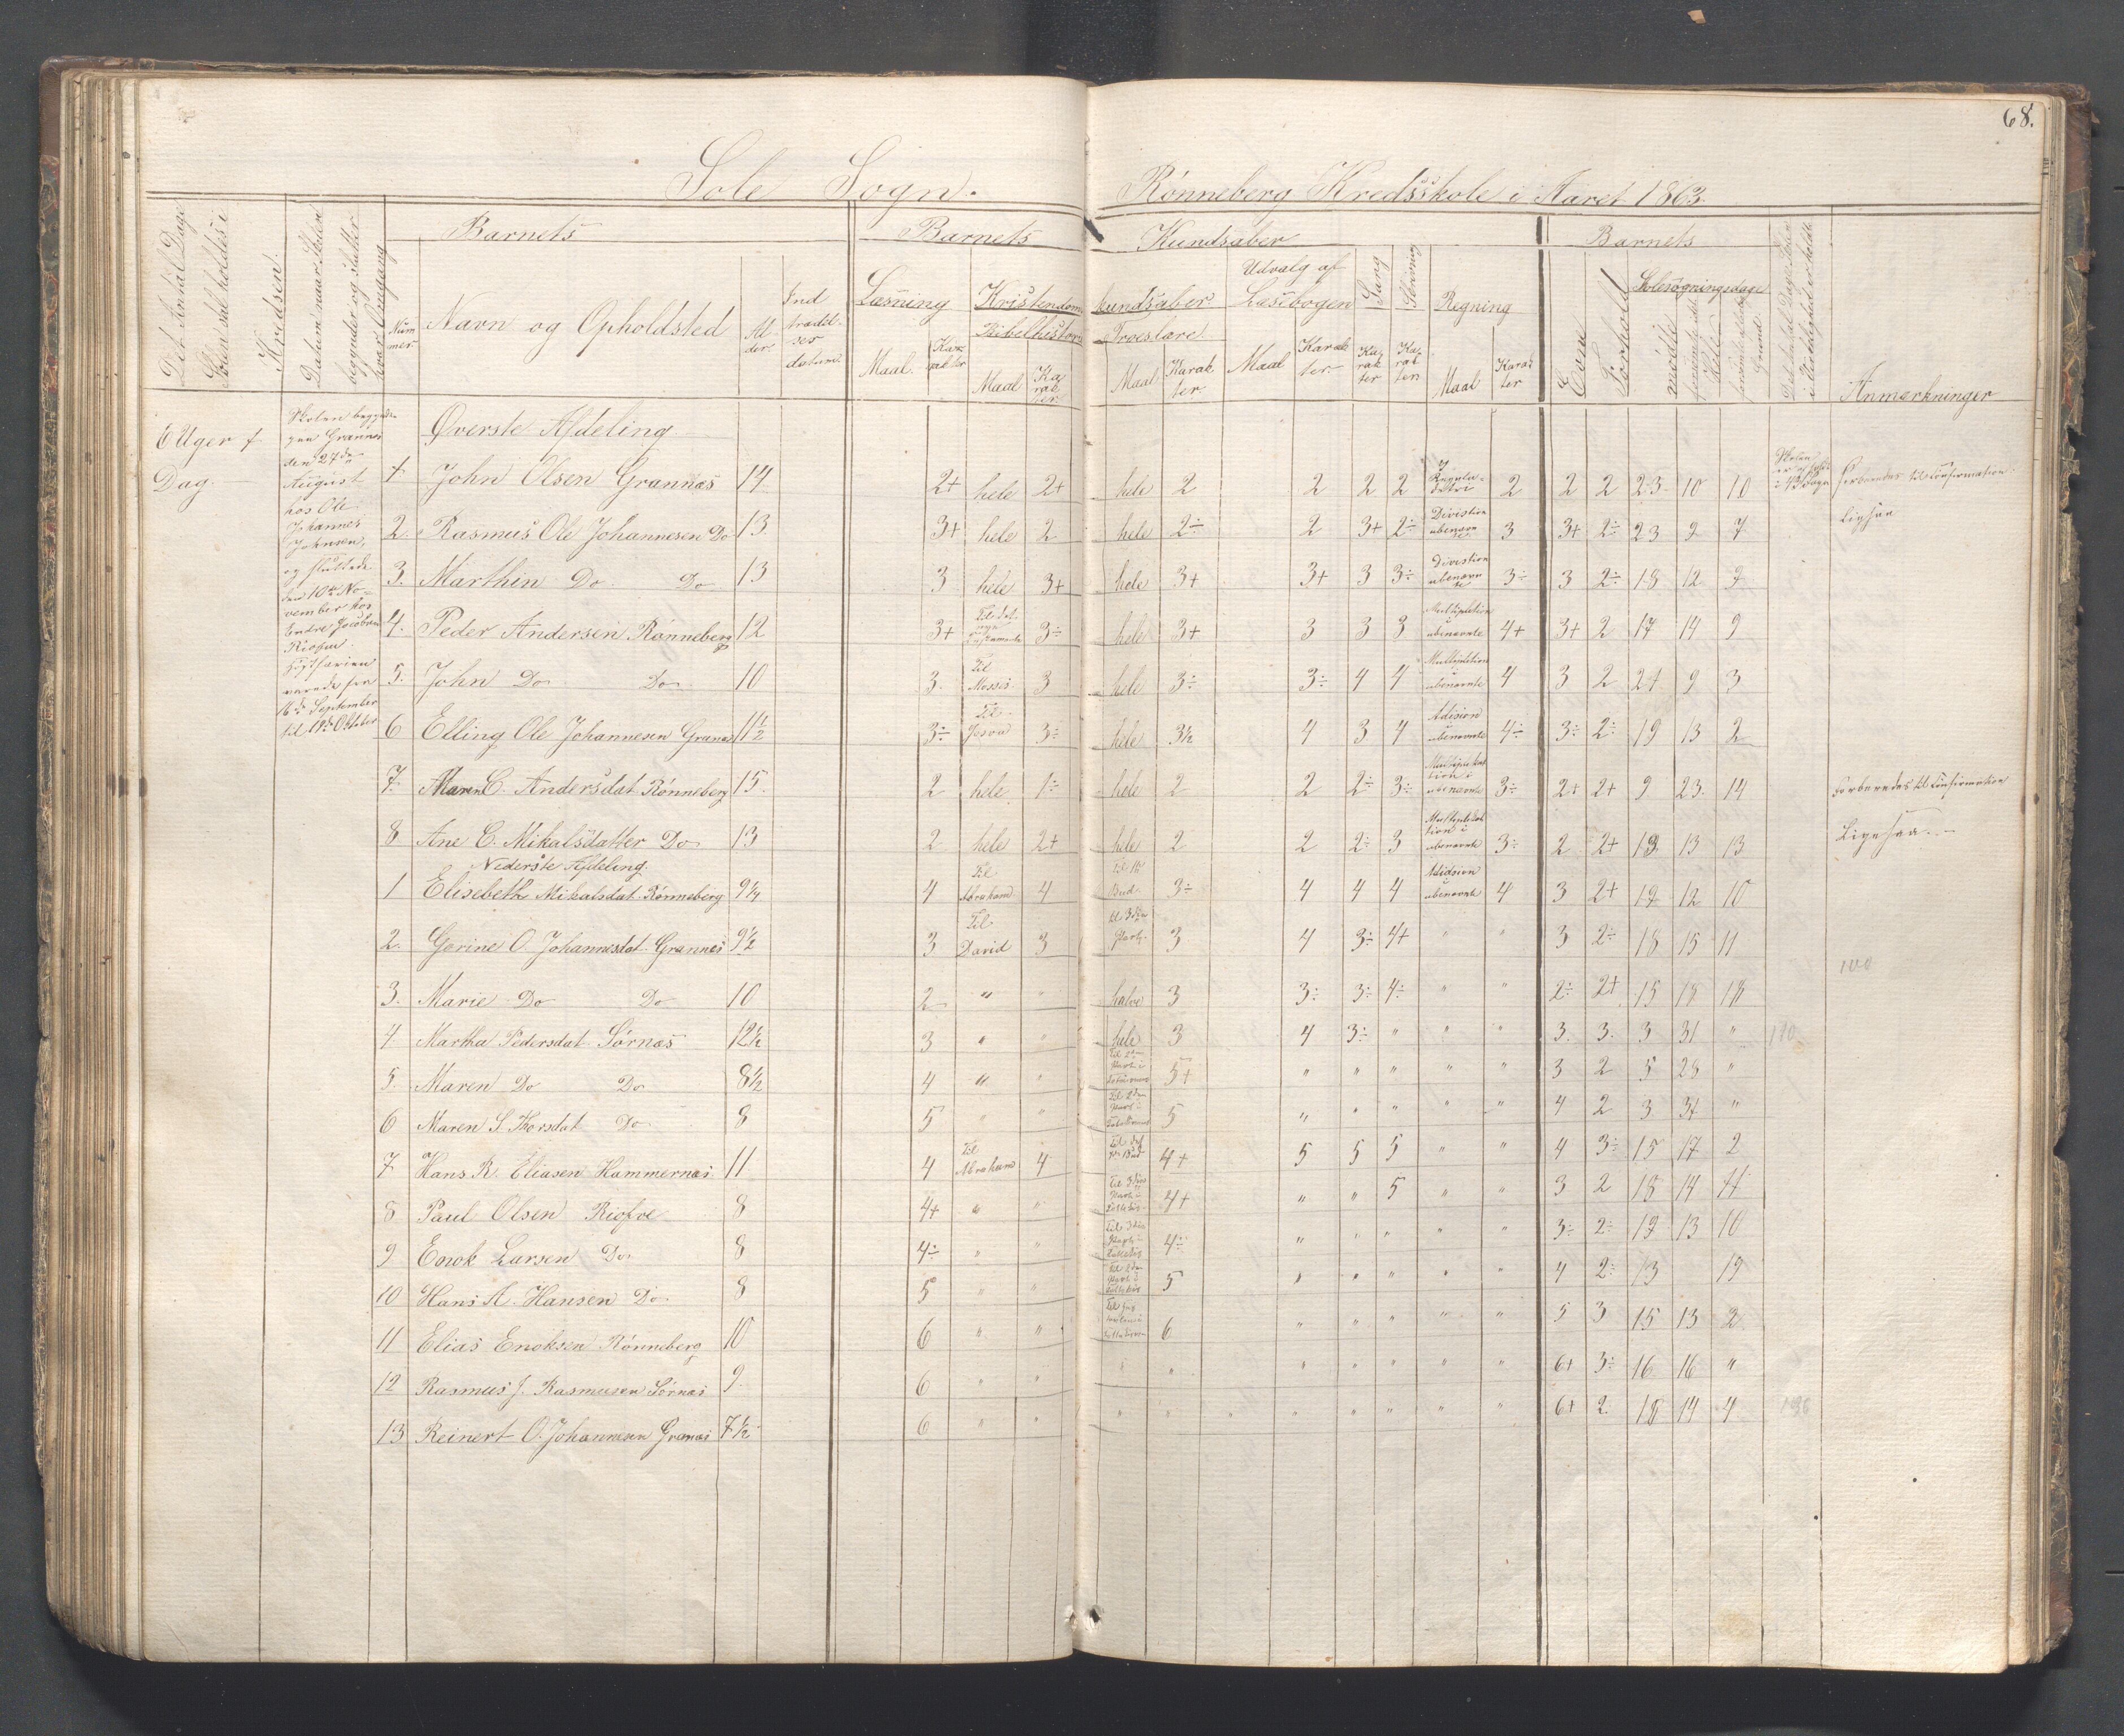 68.
Sole Sogn.
Rønneberg Kredsskole i Aaret 1863.
Det Antal Dage Skolen skal holdes i Kredsen.
Datum naar Skolen begynder og slutter hver Omgang
Barnets
Nummer
Navn og Opholdsted
Alder
Indtrædelses datum
Barnets Kundsaber
Læsning
Maal. Karakter
Kristendoms kundsaber
Bibelhistorie
Maal Karakter
Troeslære
Maal Karakter
Udvalg af Læsebogen
Maal Karakter
Sang
Karakter
Skrivning
Karakter
Regning
Maal Karakter
Barnets
Evne
Forhold
Skolesøgningsdage
mødte
Anmærkninger
6 Uger 1
Dag.
Skolen begynte
paa Grannes
den 27de
August
hos Ole
Johannes
Johnsen,
og sluttede
den 10de No-
vember hos
Endre Jacobsen
Riofve.
Høstferien
varede fra
16de September
til 19de Oktober
Øverste Afdeling
1 John Olsen Grannæs 14 2+ hele 2+ hele 2 2 2 2 2 2 2 23 10 10 Forberedes til Confirmation
2. Rasmus Ole Johannesen Do 13 3+ hele 2 hele 2÷ 2 3+ 2÷ Division ubenævnte 3 3+ 2÷ 23 9 7 Ligesaa
3. Marthin Do Do 13 3 hele 3+ hele 3+ 3+ 3 3÷ Division ubenævnte 3÷ 3 2÷ 18 12 9
4. Peder Andersen Rønneberg 12 3+ Til det nye 3÷ hele 3+ 3 3 3 Multiplikation ubenævnte 4+ 3+ 2 17 14 9
5. John Do Do 10 3. Til Moses 3 hele 3÷ 3÷ 4 4 Multiplikation ubenævnte 4 3 2 21 9 3
6 Elling Ole Johannesen Granæs 11½ 3÷ Til Josva 3÷ hele 3½ 4 3 4 Adision ubenævnte 4÷ 3÷ 2÷ 19 13 2
7. Maren C. Andersdat. Rønneberg 15. 2 hele 1÷ hele 2 2 2÷ 3÷ Multiplikation i ubenævnte 3÷ 2+ 2+ 9 23. 14 Forberedes til Confirmation
8 Ane C. Mikalsdatter Do 13 2 hele 2+ hele 2 2 2÷ 3 Multiplikation i ubenævnte 3÷ 2 2+ 19 13 13 Ligesaa.
Nederste Afdeling.
1 Elisebeth Mikalsdat. Rønneberg 9¼ 4 Til Abraham 4 Til 10 Bud. 3÷ 4 4 4 Adision ubenævnte 4 3 2+ 19 12 10
2. Gerine O. Johannesdat. Grannes 9½ 3 Til David 3 til 3die Part. 3 4 3÷ 4+ " " 3 2÷ 18 15 11
3. Marie Do Do 10 2 " " halve 3 3÷ 3÷ 4÷ " " 2÷ 2+ 15 18 18 100
4. Martha Pedersdat Sørnæs 12½ 3 " " hele 3 4 3÷ " " " 3. 3. 3 31 "
5. Maren Do Do 8½ 4 " " 5+ " " " " " 3 2 5 28 "
6 Maren S Thorsdat Do 8 5 " " 5 " " " " " 4 2 3 31 "
7 Hans R. Eliasen Hammernæs 11 4 Til Abraham 4 4+ 5 5 5 " " 4 3÷ 15 17 2
8 Paul Olsen Riofve 8 4+ " " 4+ " " 5 " " 3 2 13 14 11
9 Enok Larsen Do. 8 4÷ " " 4÷ " " " " " 3÷ 2÷ 19 13 10
10 Hans A. Hansen Do. 8 5 " " 5 " " " " " 4 2÷ 13 19
11 Elias Enoksen Rønneberg 10 6 " " 6 " " " " " 5 3 15 13 2
12 Rasmus J. Rasmusen Sørnæs 9. 6 " " " " " " " " " 6+ 3÷ 16 16 "
13 Reinert O. Johannesen Granæs 7½ 6 " " " " " " " " " " 6+ 2 18 14 4